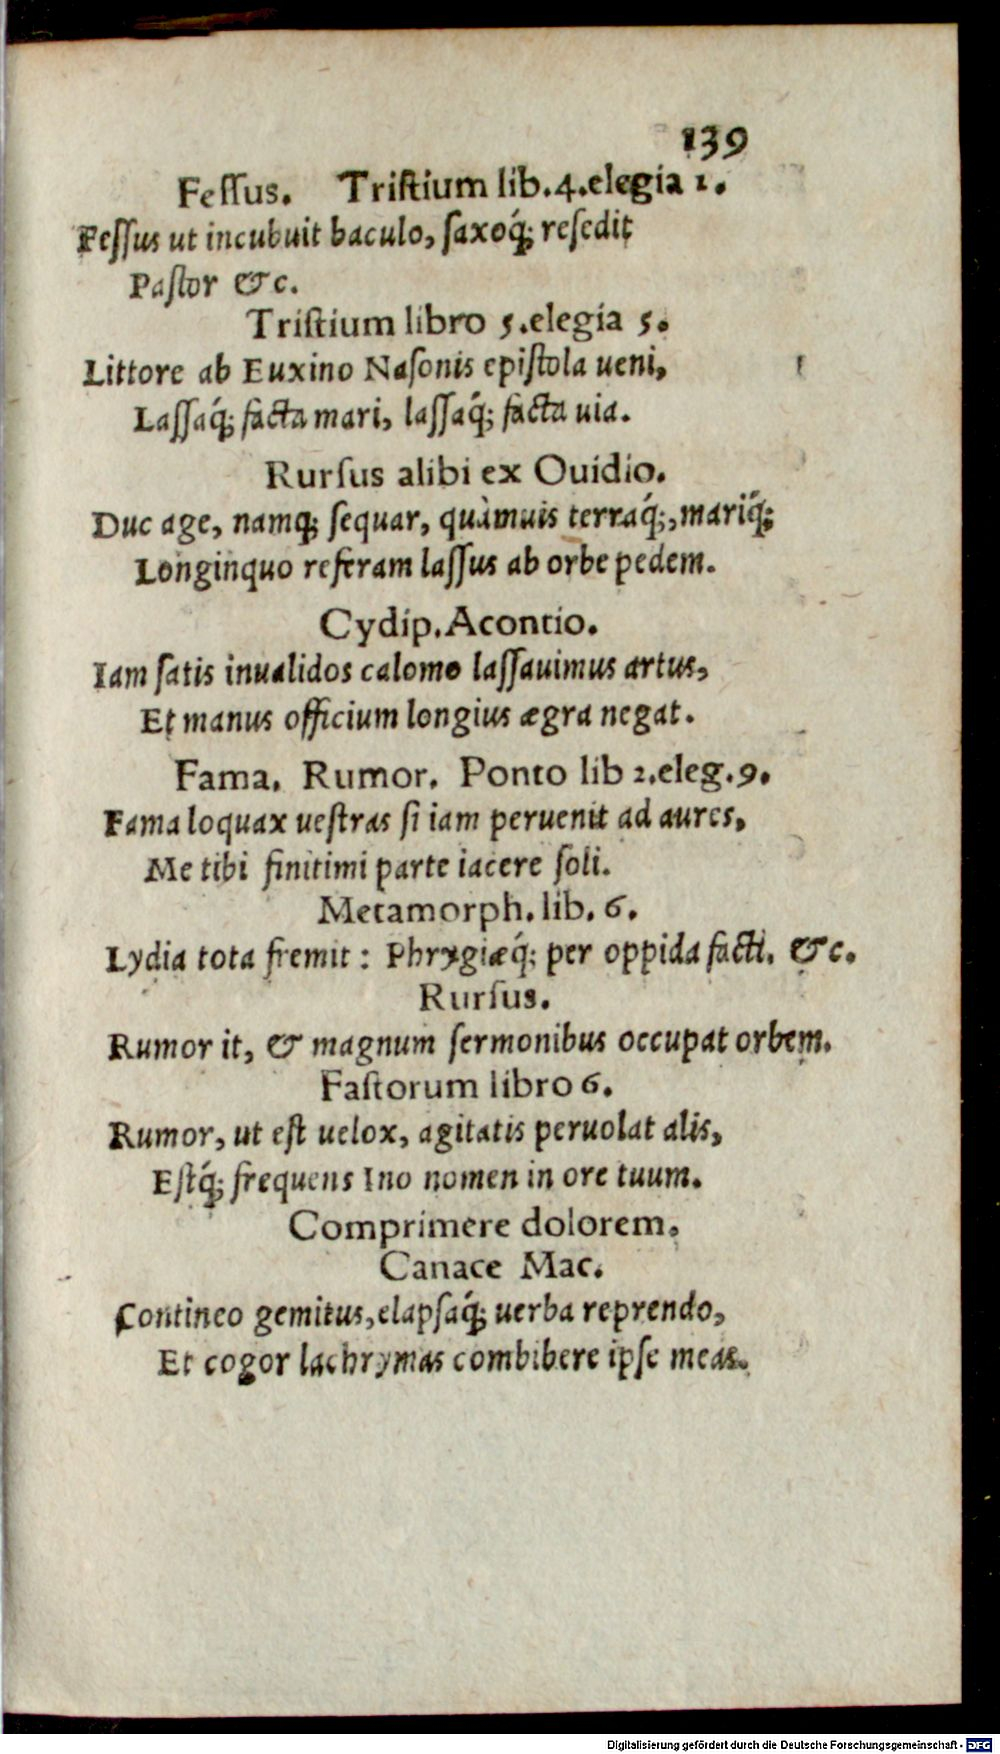 139
Feſſus. Triſtium lib.4.elegia 1.
Feſſus ut incubuit baculo, ſaxoq́; reſedit
Paſtor &c.
Triſtium libro 5.elegia 5.
Littore ab Euxino Naſonis epiſtola ueni,
Laſſaq́; facta mari, laſſaq́; facta uia.
Rurſus alibi ex Ouidio.
Duc age, namq; ſequar, quàmuis terraq́;, mariq́;
Longinquo referam laſſus ab orbe pedem.
Cydip. Acontio.
Iam ſatis inualidos calomo laſſauimus artus,
Et manus officium longius ægra negat.
Fama. Rumor. Ponto lib 2.eleg.9.
Fama loquax ueſtras ſi iam peruenit ad aures,
Me tibi finitimi parte iacere ſoli.
Metamorph. lib. 6.
Lydia tota fremit: Phrygiæq́; per oppida facti. &c.
Rurſus.
Rumor it, & magnum ſermonibus occupat orbem.
Faſtorum libro 6.
Rumor, ut eſt uelox, agitatis peruolat alis,
Eſtq́; frequens Ino nomen in ore tuum.
Comprimere dolorem.
Canace Mac.
Contineo gemitus, elapſaq́; uerba reprendo,
Et cogor lachrymas combibere ipſe meas.
Digitalisierung gefördert durch die Deutsche Forschungsgemeinschaft - DFG